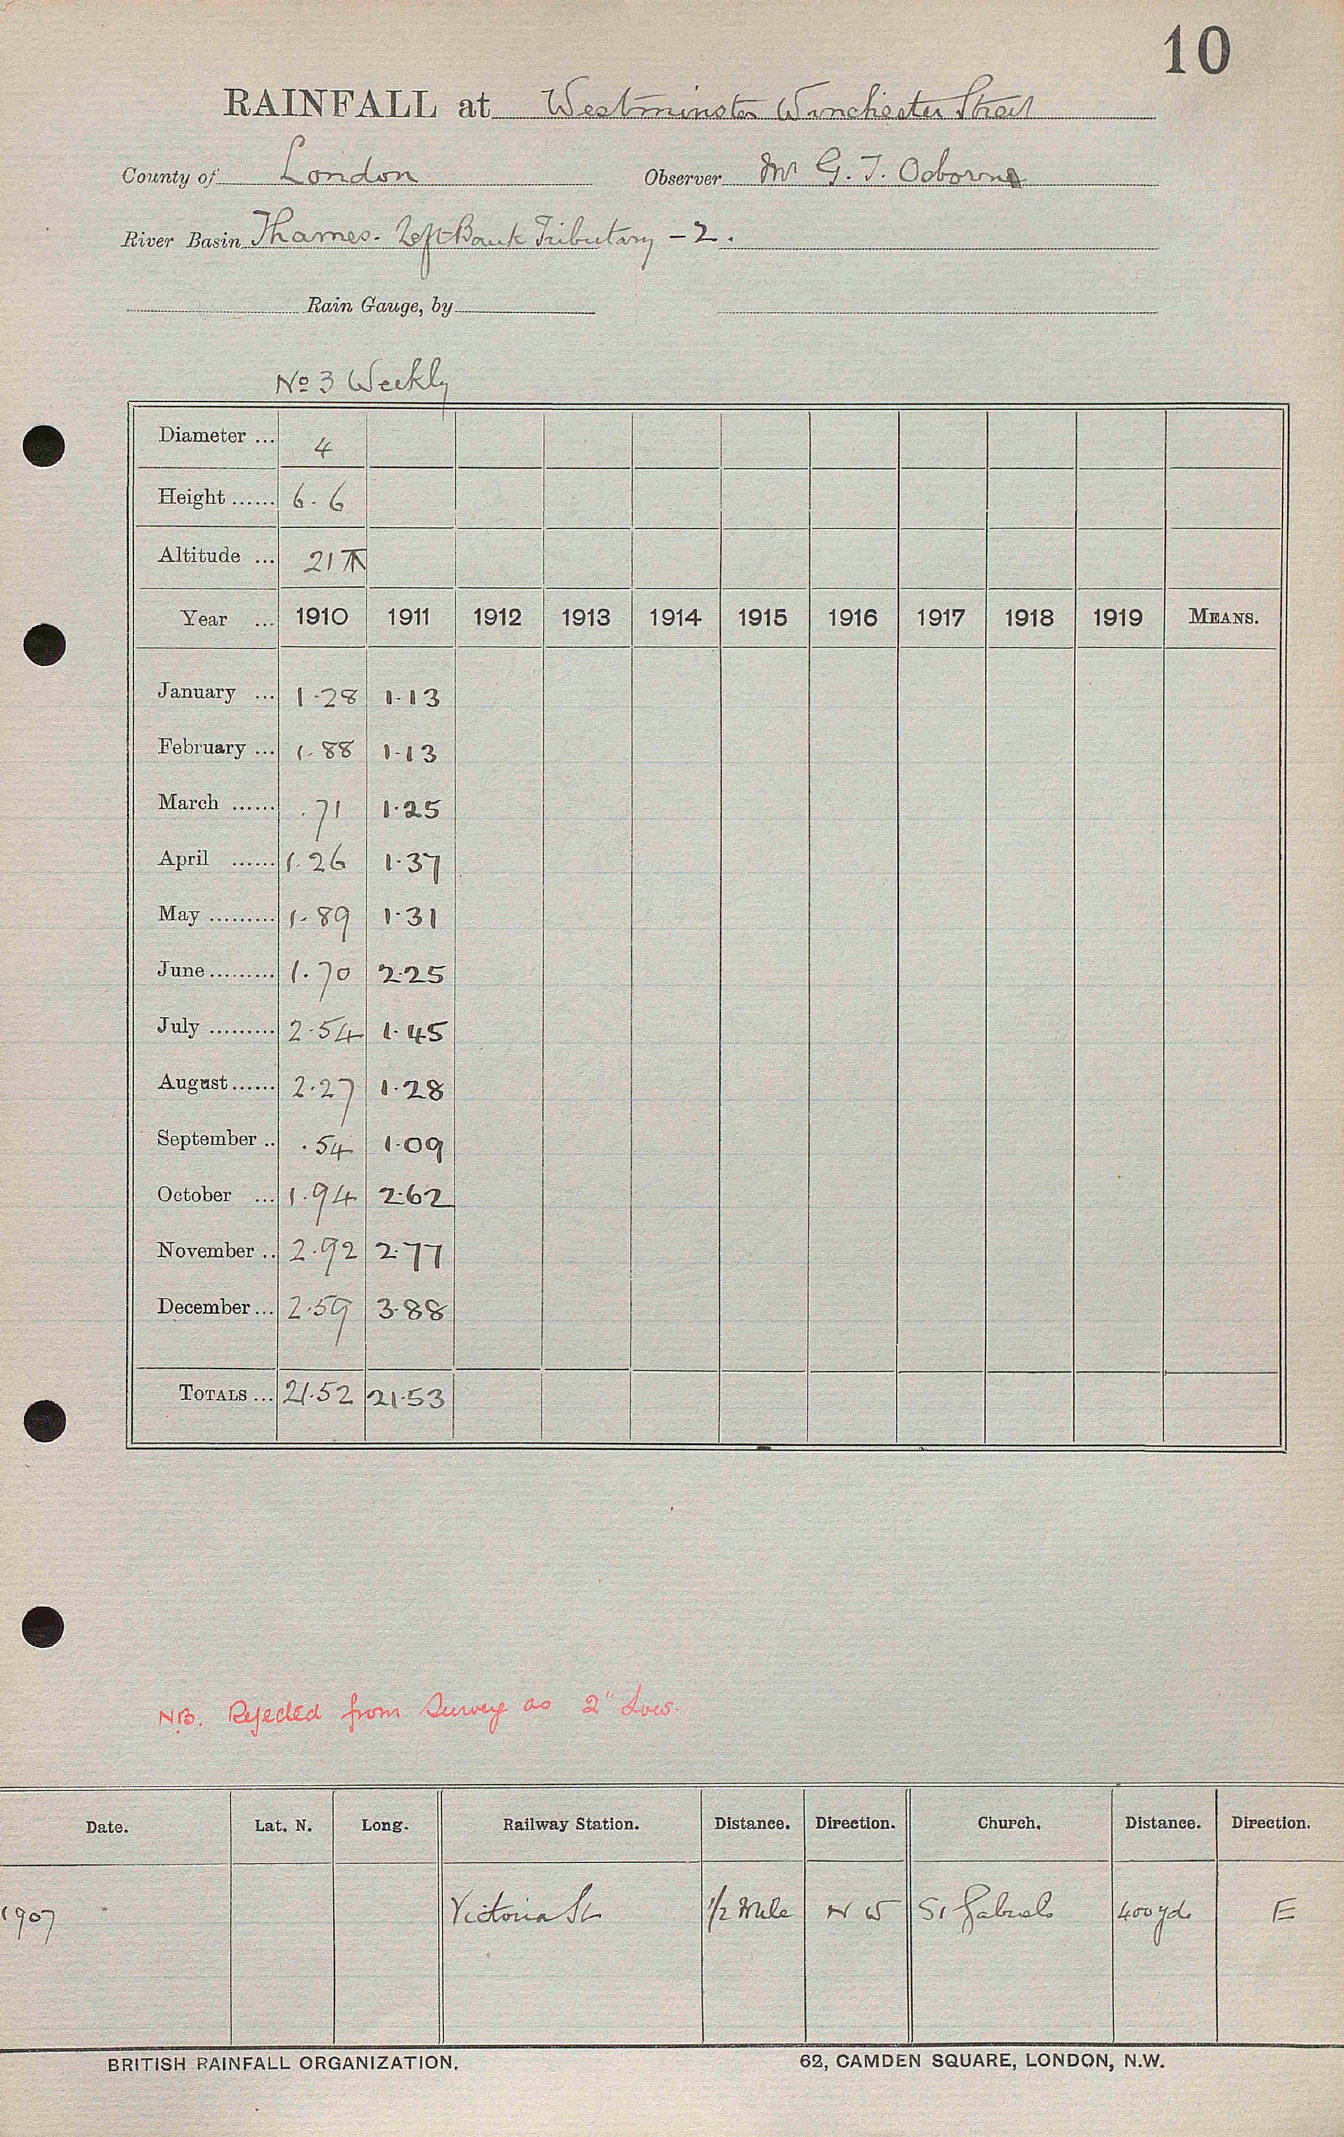 10
RAINFALL at Westminster Winchester Street
County of London Observer Mr G. J. Osborne
River Basin Thames. Left Bank Tributary - 2.
Rain Gauge, by
No 3 Weekly
Diameter ... 4
Height ...... 6. 6
Altitude ... 21
Year ... 1910 1911 1912 1913 1914 1915 1916 1917 1918 1919 MEANS.
January ... 1.28 1.13
February ... 1.88 1.13
March ...... .71 1.25
April ...... 1.26 1.37
May ......... 1.89 1.31
June ......... 1.70 2.25
July ......... 2.54 1.45
August ...... 2.27 1.28
September .. .54 1.09
October ... 1.94 2.62
November .. 2.92 2.77
December ... 2.59 3.88
TOTALS ... 21.52 21.53
NB. Rejected from Survey as 2" Low.
Date. Lat. N. Long. Railway Station. Distance. Direction. Church. Distance. Direction.
1907 Victoria St 1/2 Mile N W St Gabriels 400 yds E
BRITISH RAINFALL ORGANIZATION. 62, CAMDEN SQUARE, LONDON, N.W.